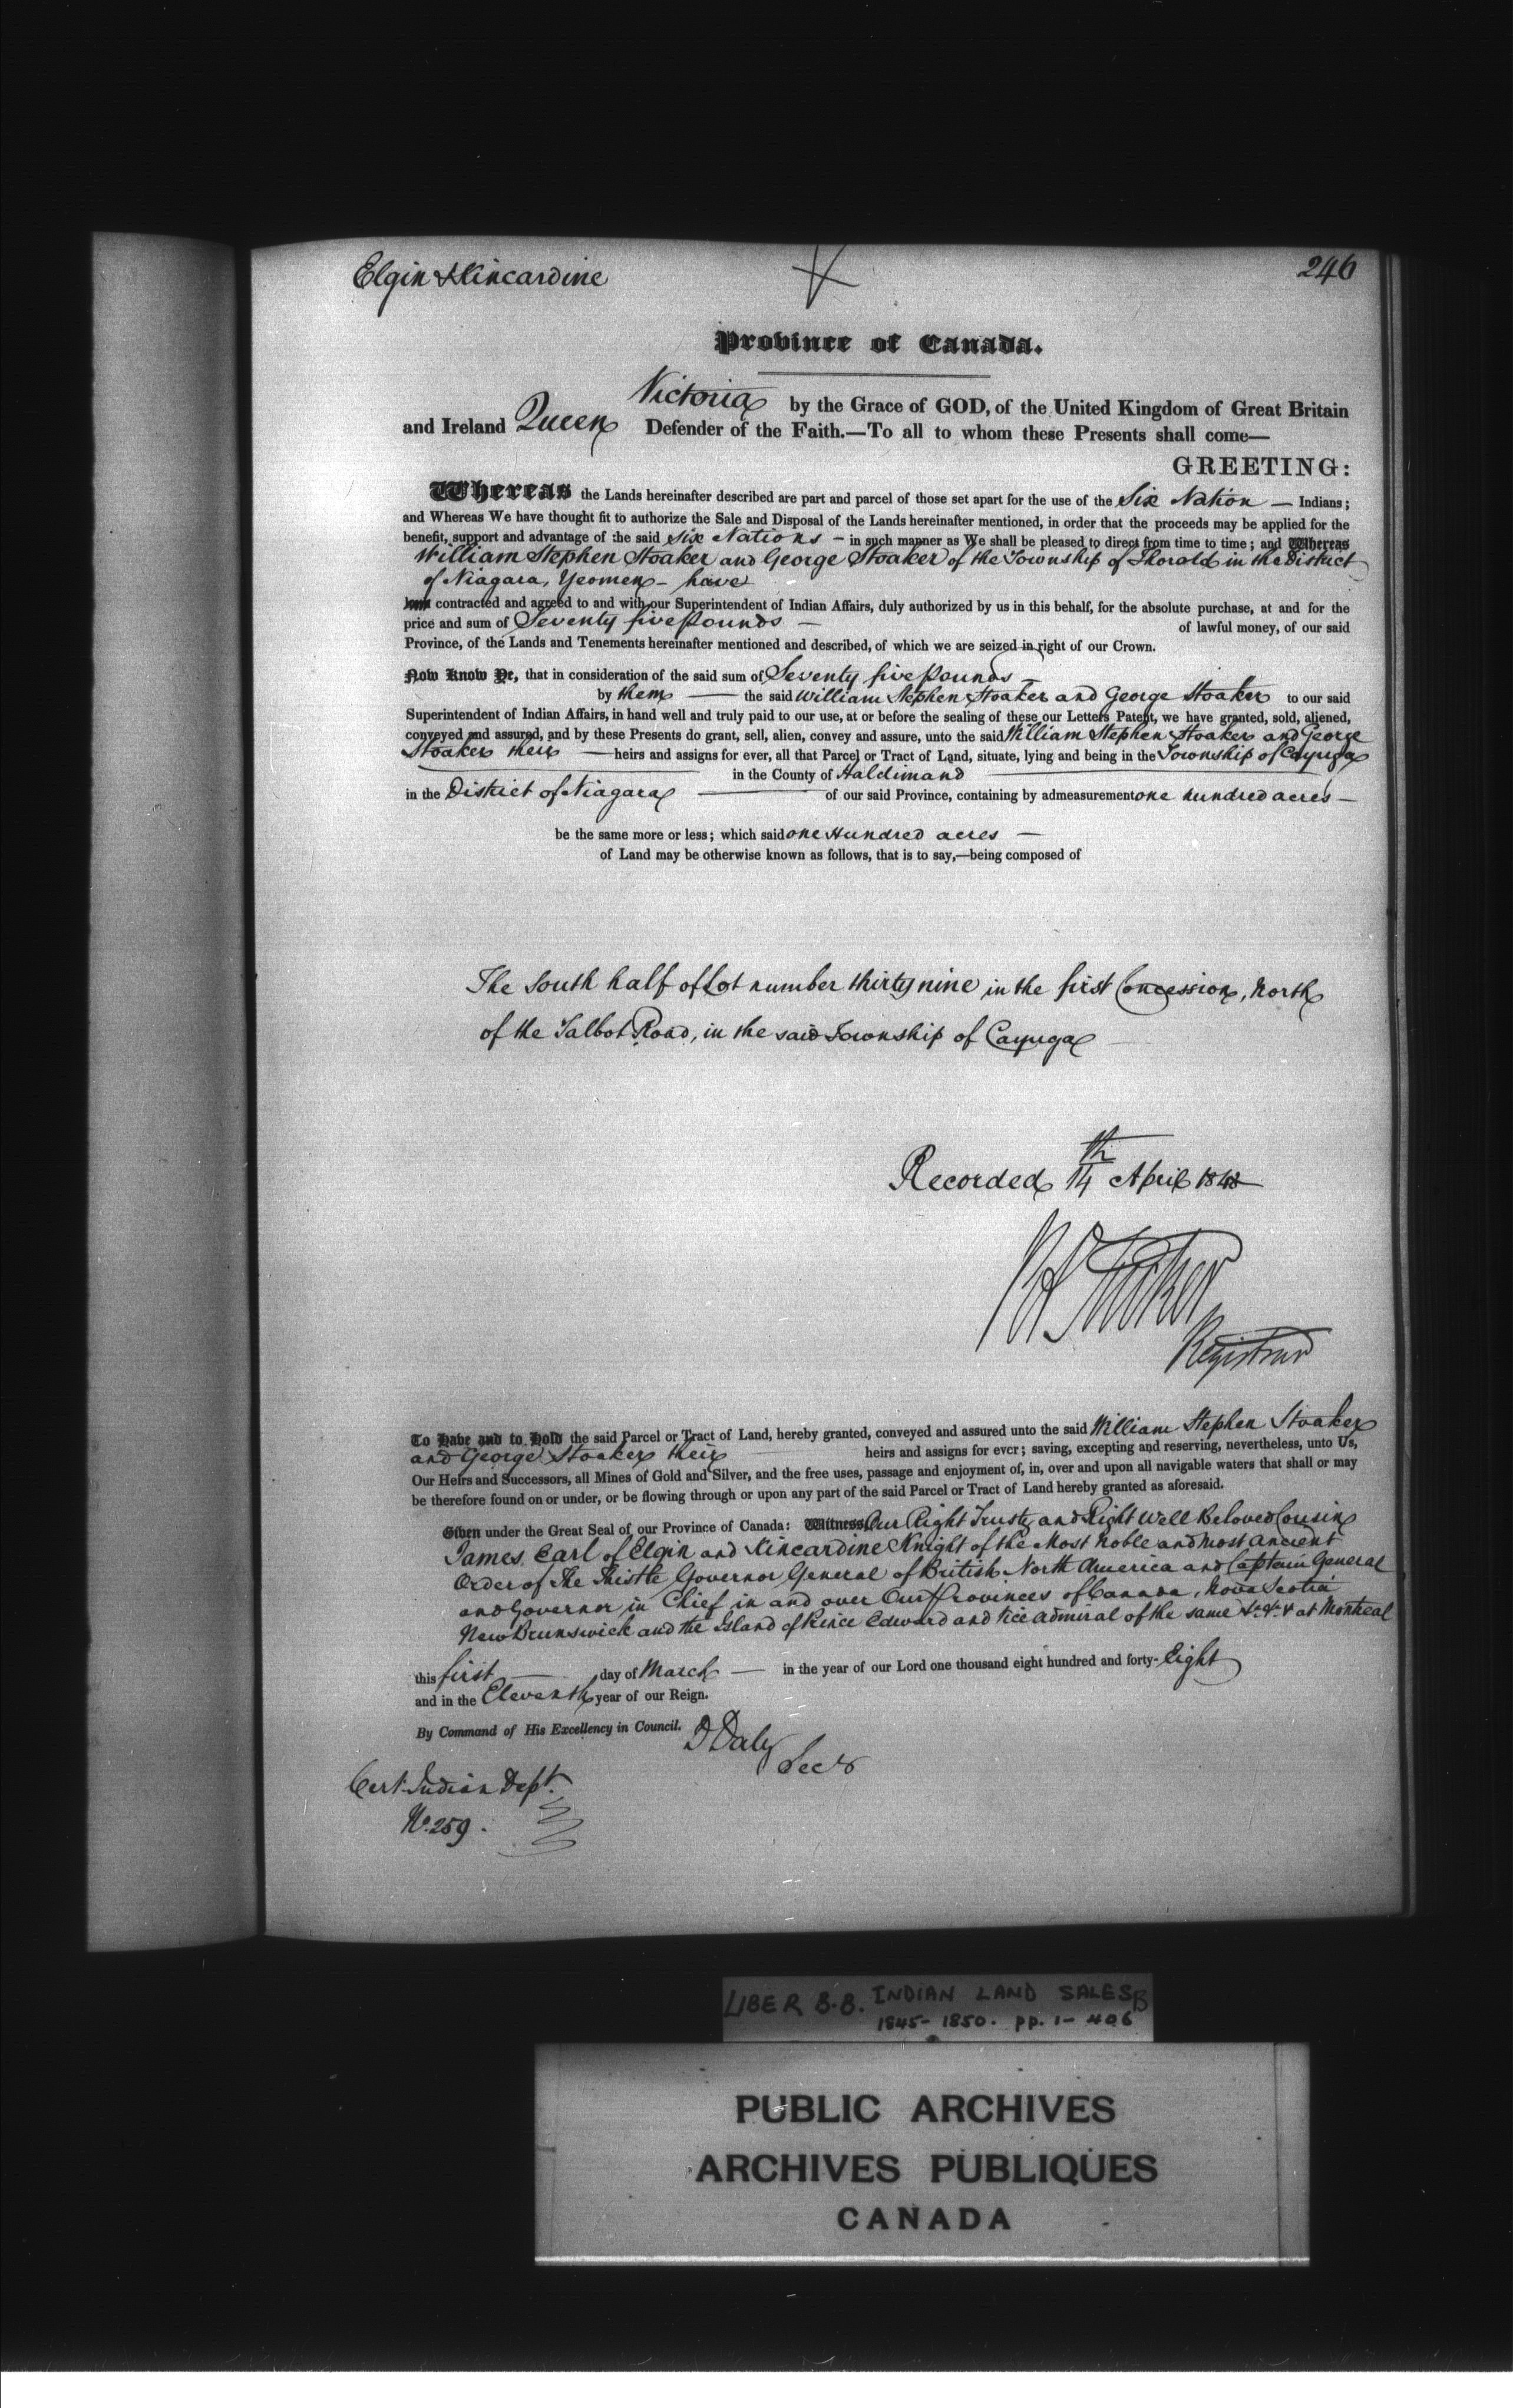 Elgin & Kincardine
246
Province of Canada.
Victoria by the Grace of GOD, of the United Kingdom of Great Britain
and Ireland Queen Defender of the Faith.—To all to whom these Presents shall come—
GREETING:
Whereas the Lands hereinafter described are part and parcel of those set apart for the use of the Six Nation — Indians;
and Whereas We have thought fit to authorize the Sale and Disposal of the Lands hereinafter mentioned, in order that the proceeds may be applied for the
benefit, support and advantage of the said Six Nations — in such manner as We shall be pleased to direct from time to time; and Whereas
William Stephen Stoaker and George Stoaker of the Township of Thorold in the District
of Niagara, Yeomen — have
contracted and agreed to and with our Superintendent of Indian Affairs, duly authorized by us in this behalf, for the absolute purchase, at and for the
price and sum of Seventy five pounds — of lawful money, of our said
Province, of the Lands and Tenements hereinafter mentioned and described, of which we are seized in right of our Crown.
Now Know Ye, that in consideration of the said sum of Seventy five pounds —
by them — the said William Stephen Stoaker and George Stoaker to our said
Superintendent of Indian Affairs, in hand well and truly paid to our use, at or before the sealing of these our Letters Patent, we have granted, sold, aliened,
conveyed and assured, and by these Presents do grant, sell, alien, convey and assure, unto the said William Stephen Stoaker and George
Stoaker their — heirs and assigns for ever, all that Parcel or Tract of Land, situate, lying and being in the Township of Cayuga
in the County of Haldimand
in the District of Niagara — of our said Province, containing by admeasurement one hundred acres —
be the same more or less; which said one Hundred acres —
of Land may be otherwise known as follows, that is to say,—being composed of
The South half of Lot number thirty nine in the first Concession, North
of the Talbot Road, in the said Township of Cayuga
Recorded 14th April 1848
Registrar
To Have and to Hold the said Parcel or Tract of Land, hereby granted, conveyed and assured unto the said William Stephen Stoaker
and George Stoaker their heirs and assigns for ever; saving, excepting and reserving, nevertheless, unto Us,
Our Heirs and Successors, all Mines of Gold and Silver, and the free uses, passage and enjoyment of, in, over and upon all navigable waters that shall or may
be therefore found on or under, or be flowing through or upon any part of the said Parcel or Tract of Land hereby granted as aforesaid.
Given under the Great Seal of our Province of Canada: Witness, Our Right Trusty and Right Well Beloved Cousin
James Earl of Elgin and Kincardine Knight of the Most Noble and Most Ancient
Order of The Thistle Governor General of British North America and Captain General
and Governor in Chief in and over Our Provinces of Canada, Nova Scotia
New Brunswick and the Island of Prince Edward and Vice Admiral of the same &c. &c. & at Montreal
this first — day of March — in the year of our Lord one thousand eight hundred and forty-Eight
and in the Eleventh year of our Reign.
By Command of His Excellency in Council.
D Daly
Secy
Cert. Indian Dept.
No. 259.
LIBER B.B. INDIAN LAND SALES B
1845-1850. pp. 1-406
PUBLIC ARCHIVES
ARCHIVES PUBLIQUES
CANADA